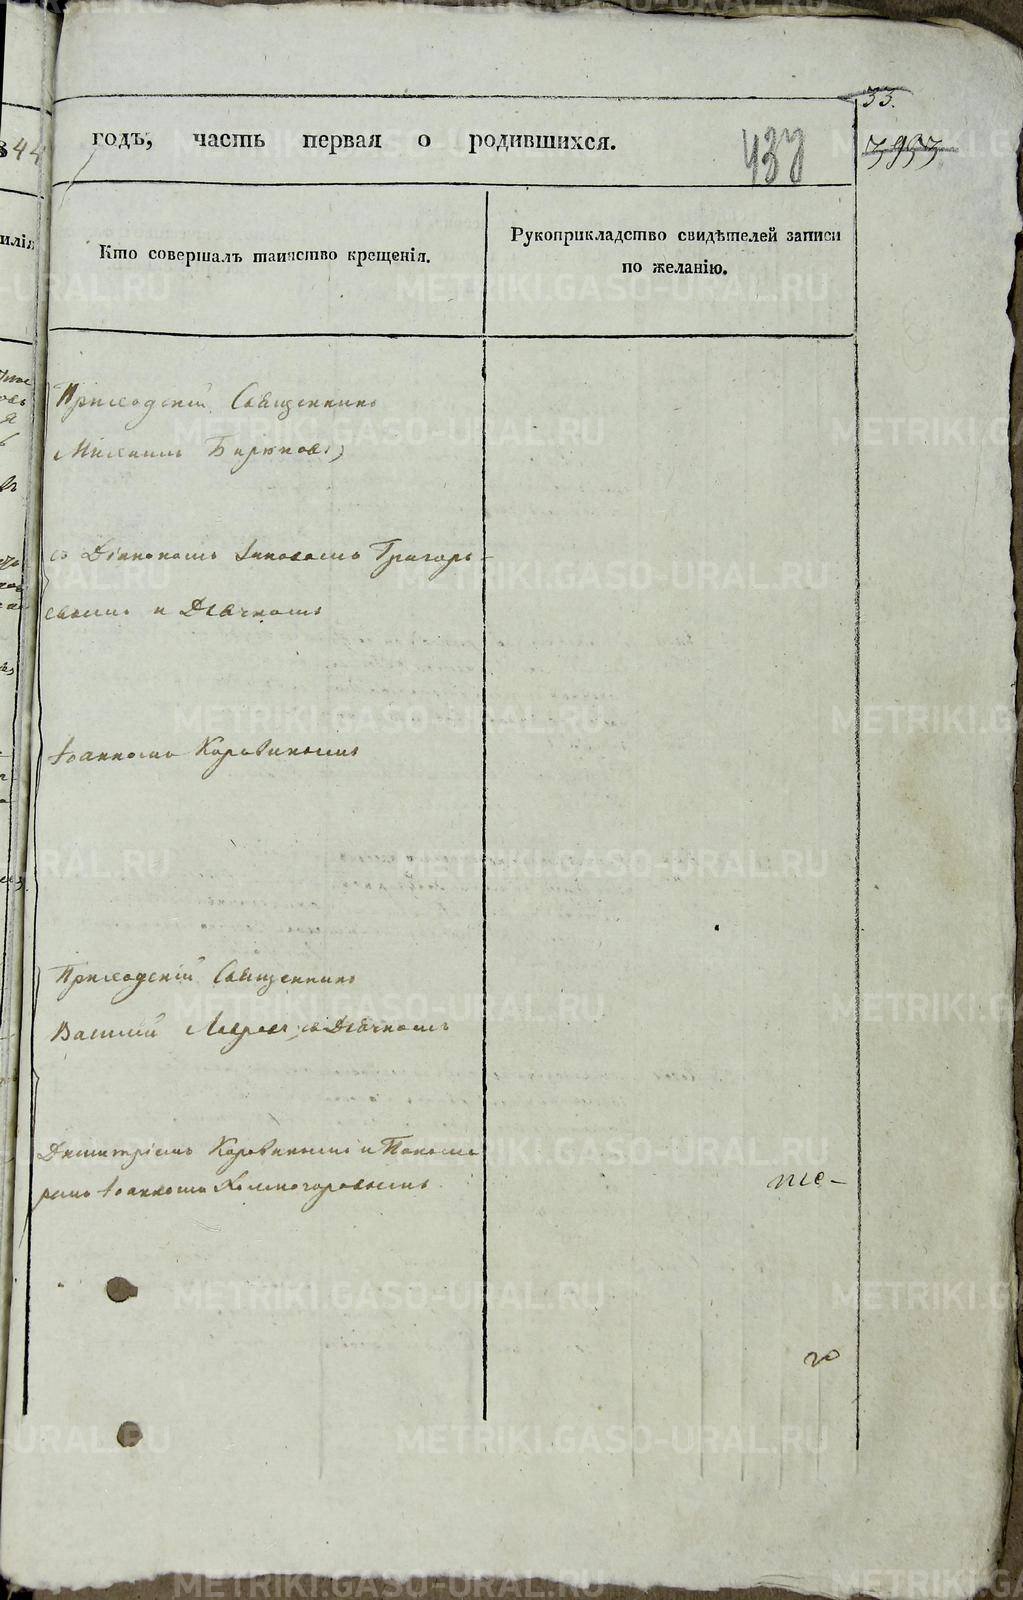 33.
годъ, часть первая о родившихся.
437
Кто совершалъ таинство крещенія.
Рукоприкладство свидѣтелей записи
по желанію.
Приходскій Священникъ
Михаилъ Бирюковъ,
съ Діакономъ Іаковомъ Григорь-
евымъ и Дьячкомъ
Іоанномъ Коровинымъ
Приходскій Священникъ
Василій съ Дьячкомъ
Димитріемъ Коровинымъ и Понома
ремъ Іоанномъ Холмогоровымъ.
METRIKI.GASO-URAL.RU